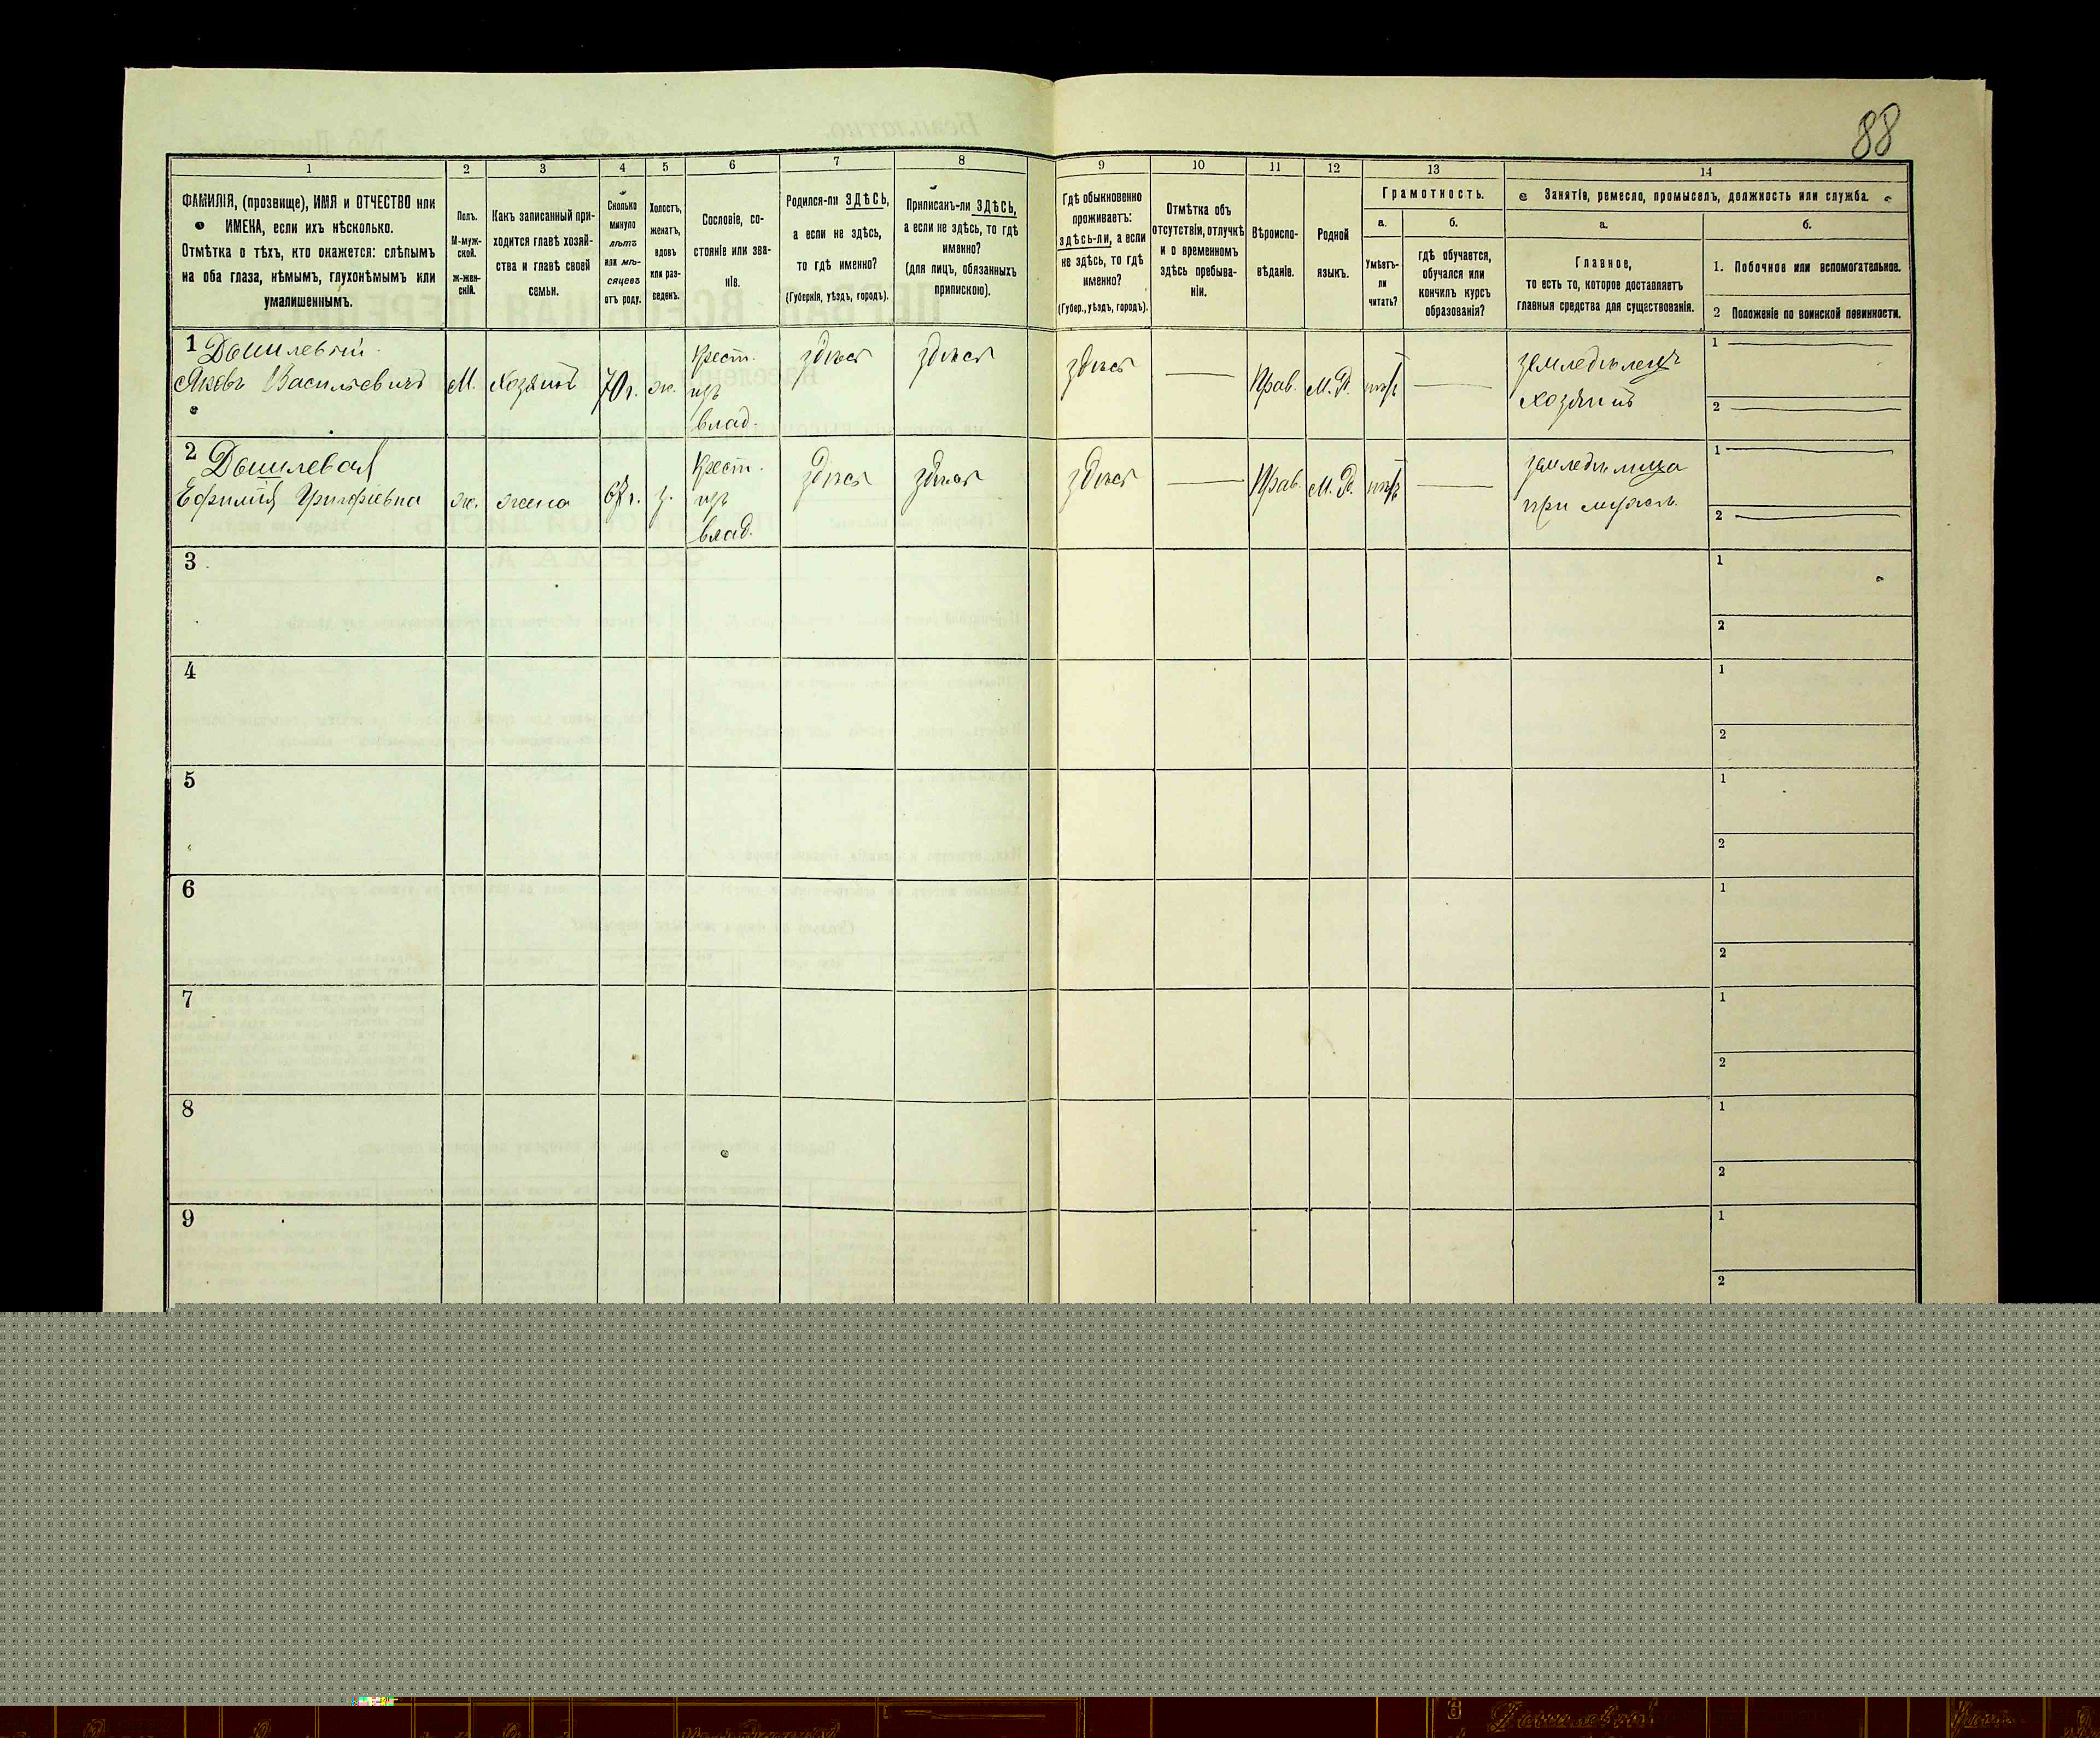 88
1 2 3 4 5 6 7 8 9 10 11 12 13 14
ФАМИЛІЯ, (прозвище), ИМЯ и ОТЧЕСТВО или
ИМЕНА, если ихъ нѣсколько.
Отмѣтка о тѣхъ, кто окажется: слѣпымъ
на оба глаза, нѣмымъ, глухонѣмымъ или
умалишеннымъ.
Полъ.
М-муж-
ской.
Ж-жен-
скій.
Какъ записанный при-
ходится главѣ хозяй-
ства и главѣ своей
семьи.
Сколько
минуло
лѣтъ
или мѣ-
сяцевъ
отъ роду.
Холостъ,
женатъ,
вдовъ
или раз-
веденъ.
Сословіе, со-
стояніе или зва-
ніе.
Родился-ли ЗДѢСЬ,
а если не здѣсь,
то гдѣ именно?
(Губернія, уѣздъ, городъ).
Приписанъ-ли ЗДѢСЬ,
а если не здѣсь, то гдѣ
именно?
(для лицъ, обязанныхъ
припискою).
Гдѣ обыкновенно
проживаетъ:
здѣсь-ли, а если
не здѣсь, то гдѣ
именно?
(Губер., уѣздъ, городъ).
Отмѣтка объ
отсутствіи, отлучкѣ
и о временномъ
здѣсь пребыва-
ніи.
Вѣроиспо-
вѣданіе.
Родной
языкъ.
Грамотность.
а.
Умѣетъ-
ли
читать?
б.
гдѣ обучается,
обучался или
кончилъ курсъ
образованія?
Занятіе, ремесло, промыселъ, должность или служба.
а.
Главное,
то есть то, которое доставляетъ
главныя средства для существованія.
б.
1. Побочное или вспомогательное.
2 Положеніе по воинской повинности.
1 Дошлевый
Яковъ Васильевичъ
М.
Хозяинъ
70 г.
ж.
Крест.
изъ
влад.
здѣсь
здѣсь
здѣсь
Прав.
М. Р.
нѣтъ
земледѣлецъ
хозяинъ
1
2
2 Дошлевая
Ефимія Григорьевна
ж.
жена
67 г.
з.
Крест.
изъ
влад.
здѣсь
здѣсь
здѣсь
Прав.
М. Р.
нѣтъ
при мужѣ.
1
2
3
1
2
4
1
2
5
1
2
6
1
2
7
1
2
8
1
2
9
1
2